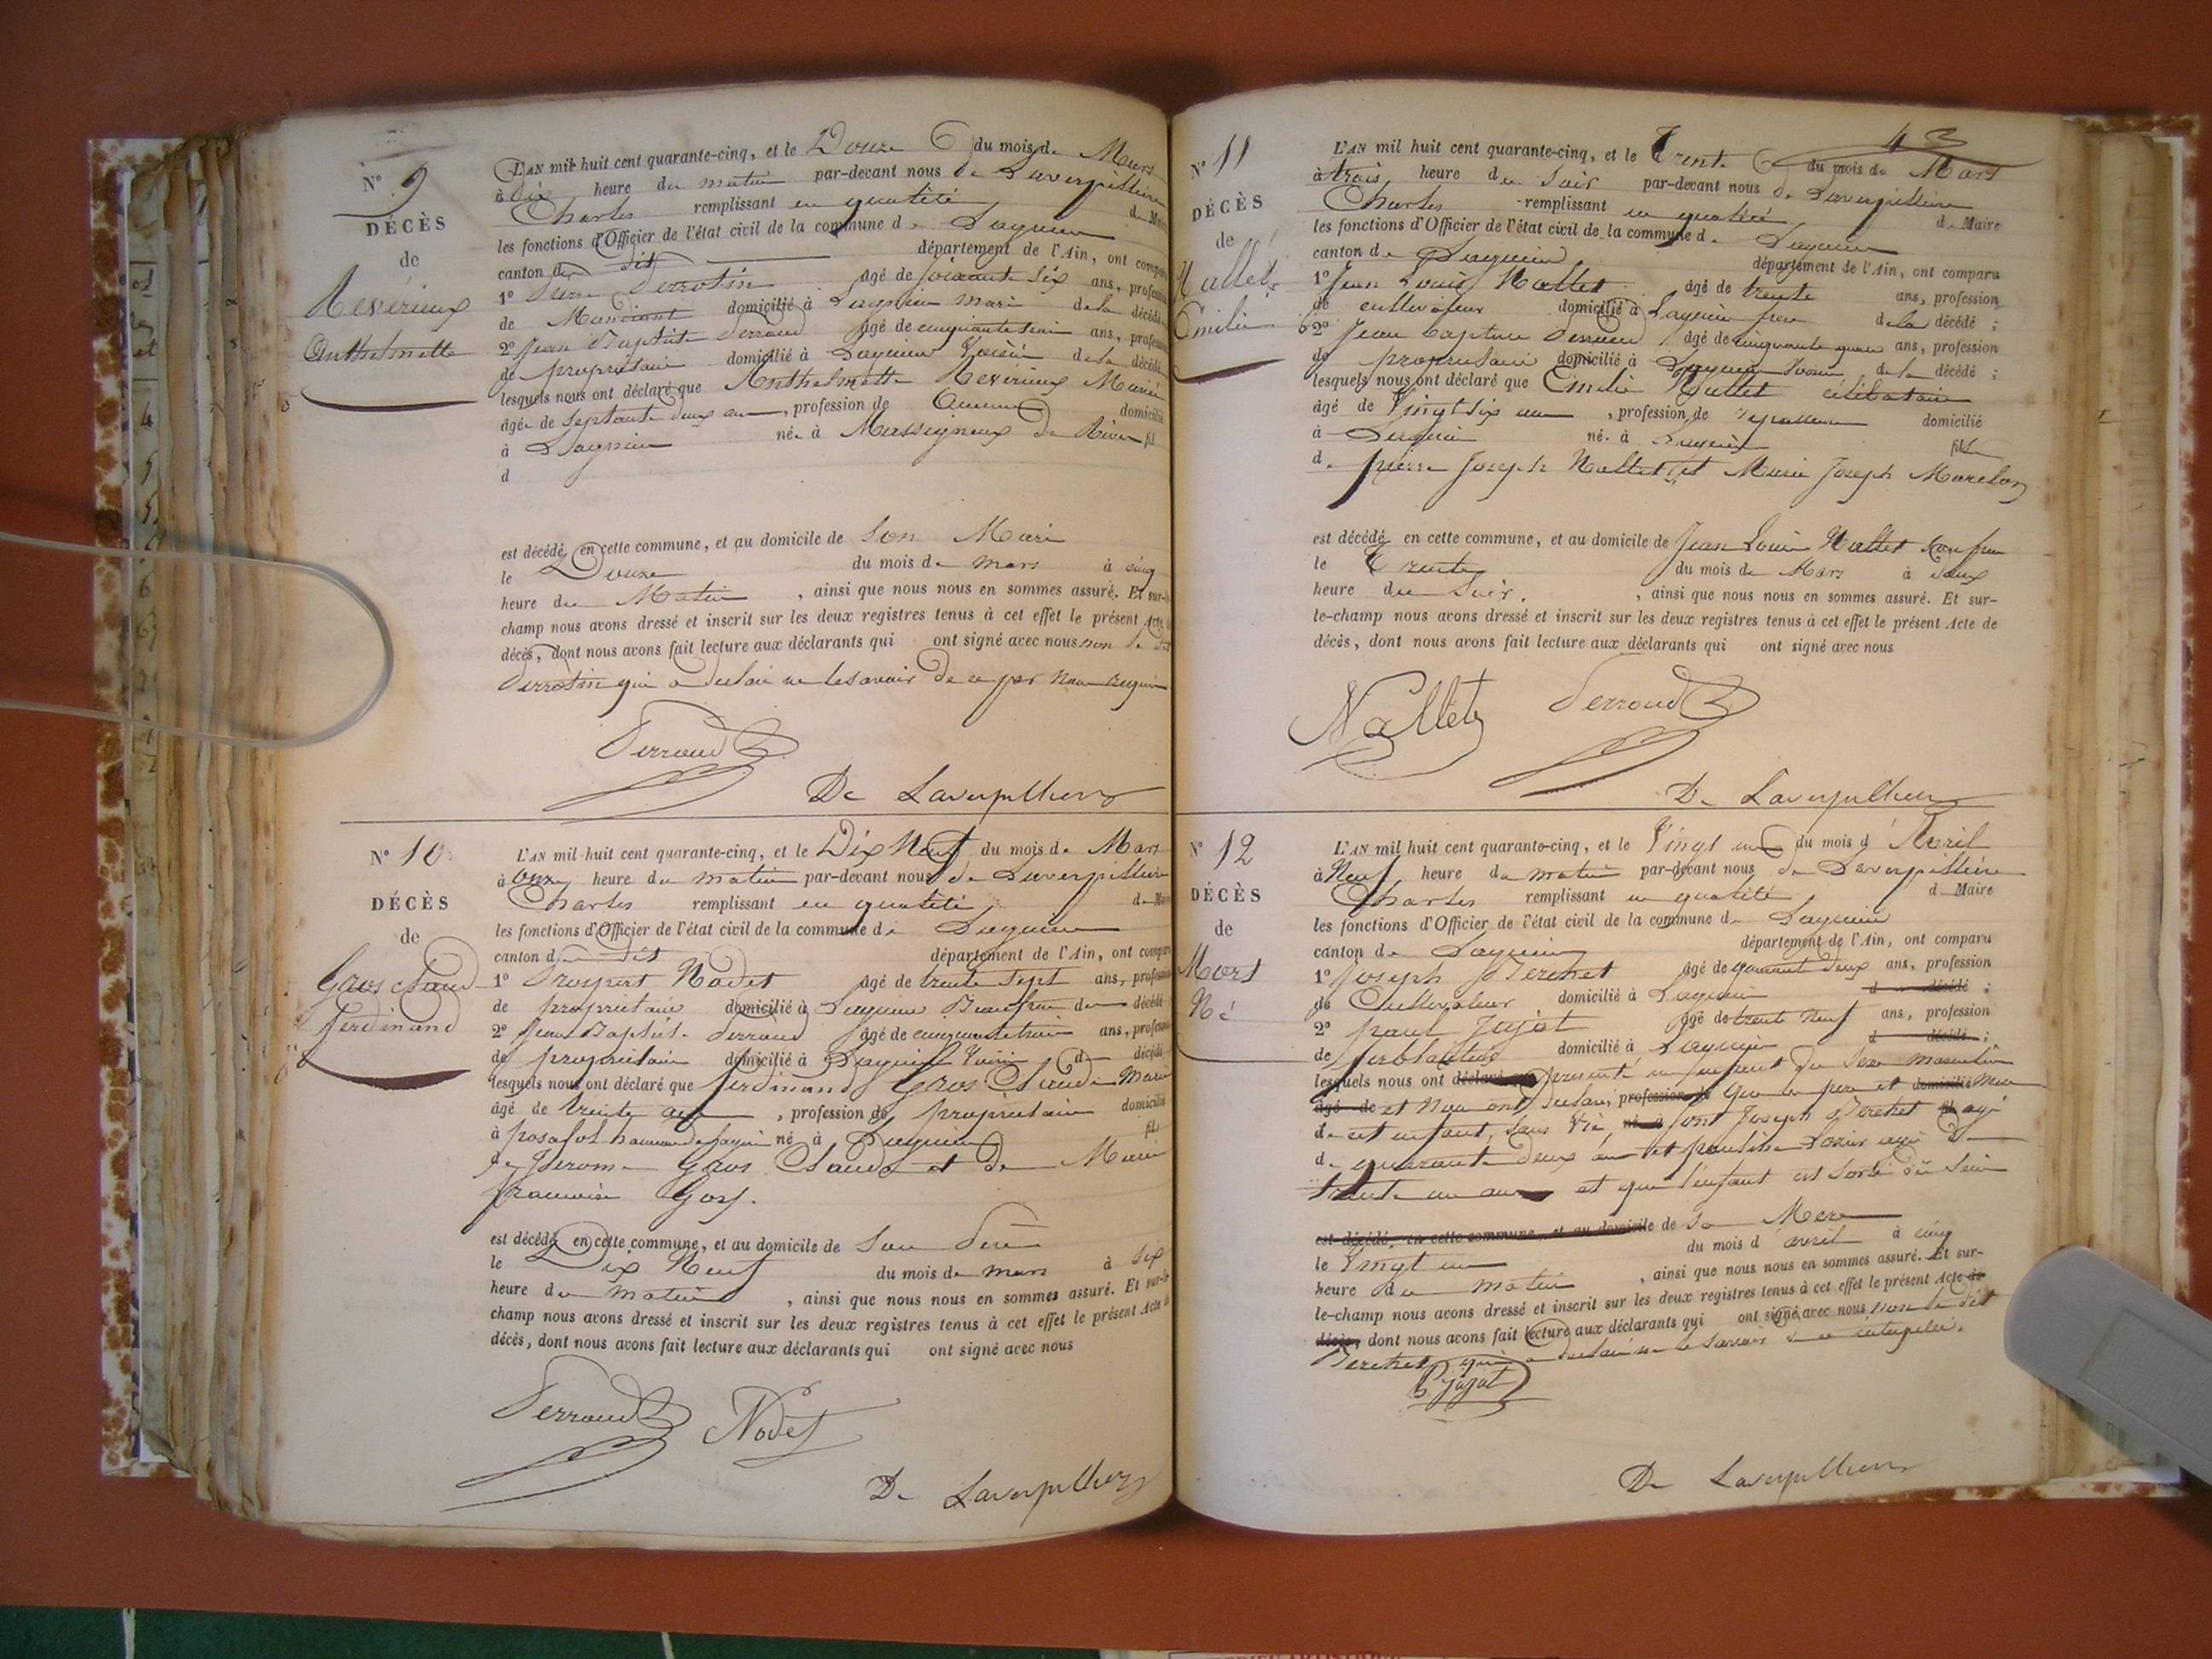 N° 9
DÉCÈS
de
Revérieux
Anthelmette
L'AN mil huit cent quarante-cinq, et le Douze du mois de Mars
à dix heure du matin par-devant nous de Laverpillière
Charles remplissant en qualité de Maire
les fonctions d'Officier de l'état civil de la commune de Lagnieu
canton du dit département de l'Ain, ont comparu
1° Pierre Perrotin âgé de soixante six ans, profession
de domicilié à Lagnieu mari de la décédée
2° Jean Baptiste Perraud âgé de cinquante trois ans, profession
de propriétaire domicilié à Lagnieu Voisin de la décédée
lesquels nous ont déclaré que Anthelmette Revérieux Mariée
âgée de septante deux ans, profession de Aucune domicilié
à Lagnieu née à Massigneux de Rives fil
d
est décédé en cette commune, et au domicile de son Mari
le Douze du mois de mars à cinq
heure du Matin, ainsi que nous nous en sommes assuré. Et sur-le-
champ nous avons dressé et inscrit sur les deux registres tenus à cet effet le présent Acte de
décès, dont nous avons fait lecture aux déclarants qui ont signé avec nous non le dit
Perrotin qui a déclaré ne le savoir de ce par nous requis
Perraud
De Laverpilliere
N° 10
DÉCÈS
de
Gros Claude
ferdinand
L'AN mil huit cent quarante-cinq, et le Dix Neuf du mois de Mars
à onze heure du matin par-devant nous de Laverpilliere
Charles remplissant en qualité de Maire
les fonctions d'Officier de l'état civil de la commune de Lagnieu
canton du dit département de l'Ain, ont comparu
1° Prosper Nodet âgé de trente sept ans, profession
de propriétaire domicilié à Lagnieu Beaufrère du décédé
2° Jean Baptiste Perraud âgé de cinquante trois ans, profession
de propriétaire domicilié à Lagnieu Voisin du décédé
lesquels nous ont déclaré que ferdinand Gros Claude Marié
âgé de trente ans, profession de propriétaire domicilié
à posafol hameau de Lagnieu né à Lagnieu fils
de Jerome Gros Claude et de Marie
francoise Gros.
est décédé en cette commune, et au domicile de son Père
le Dix Neuf du mois de mars à six
heure du matin, ainsi que nous nous en sommes assuré. Et sur-le-
champ nous avons dressé et inscrit sur les deux registres tenus à cet effet le présent Acte de
décès, dont nous avons fait lecture aux déclarants qui ont signé avec nous
Perraud Nodet
De Laverpilliere
43
N° 11
DÉCÈS
de
Nallet
Emilie
L'AN mil huit cent quarante-cinq, et le Trente du mois de Mars
à trois heure du soir par-devant nous de Laverpilliere
Charles remplissant en qualité de Maire
les fonctions d'Officier de l'état civil de la commune de Lagnieu
canton de Lagnieu département de l'Ain, ont comparu
1° Jean Louis Nallet âgé de trente ans, profession
de cultivateur domicilié à Lagnieu frere de la décédé;
2° Jean baptiste Perraud âgé de cinquante quatre ans, profession
de propriétaire domicilié à Lagnieu Voisin de la décédé;
lesquels nous ont déclaré que Emilie Nallet célibataire
âgé de Vingt six ans, profession de domicilié
à Lagnieu née à Lagnieu fille
de pierre Joseph Nallet et Marie Joseph Marelon
est décédé en cette commune, et au domicile de Jean Louis Nallet son frere
le Trente du mois de Mars à deux
heure du soir, ainsi que nous nous en sommes assuré. Et sur-
le-champ nous avons dressé et inscrit sur les deux registres tenus à cet effet le présent Acte de
décès, dont nous avons fait lecture aux déclarants qui ont signé avec nous
Nallet Perraud
De Laverpilliere
N° 12
DÉCÈS
de
Mort
Né
L'AN mil huit cent quarante-cinq, et le Vingt un du mois d'Avril
à Neuf heure du matin par-devant nous de Laverpilliere
Charles remplissant en qualité de Maire
les fonctions d'Officier de l'état civil de la commune de Lagnieu
canton de Lagnieu département de l'Ain, ont comparu
1° Joseph Berchet âgé de quarante deux ans, profession
de Cultivateur domicilié à Lagnieu d décédé;
2° paul Jajot âgé de trente Neuf ans, profession
de ferblantier domicilié à Lagnieu d décédé;
lesquels nous ont déclaré que présenté un enfant du sexe masculin
âgé de et Nous ont déclaré, profession de que les pere et domicilié Mere
de cet enfant, sans Vie, né à sont Joseph Berchet fil agé
de quarante deux ans et pauline Lozier agé de
trente un ans et que l'enfant est sorti du sein
est décédé, en cette commune, et au domicile de sa Mere
le Vingt un du mois d'avril à cinq
heure du matin, ainsi que nous nous en sommes assuré. Et sur-
le-champ nous avons dressé et inscrit sur les deux registres tenus à cet effet le présent Acte de
décès, dont nous avons fait lecture aux déclarants qui ont signé avec nous non le dit
Berchet qui a déclaré ne le savoir de ce interpellé.
P Jajot
De Laverpilliere